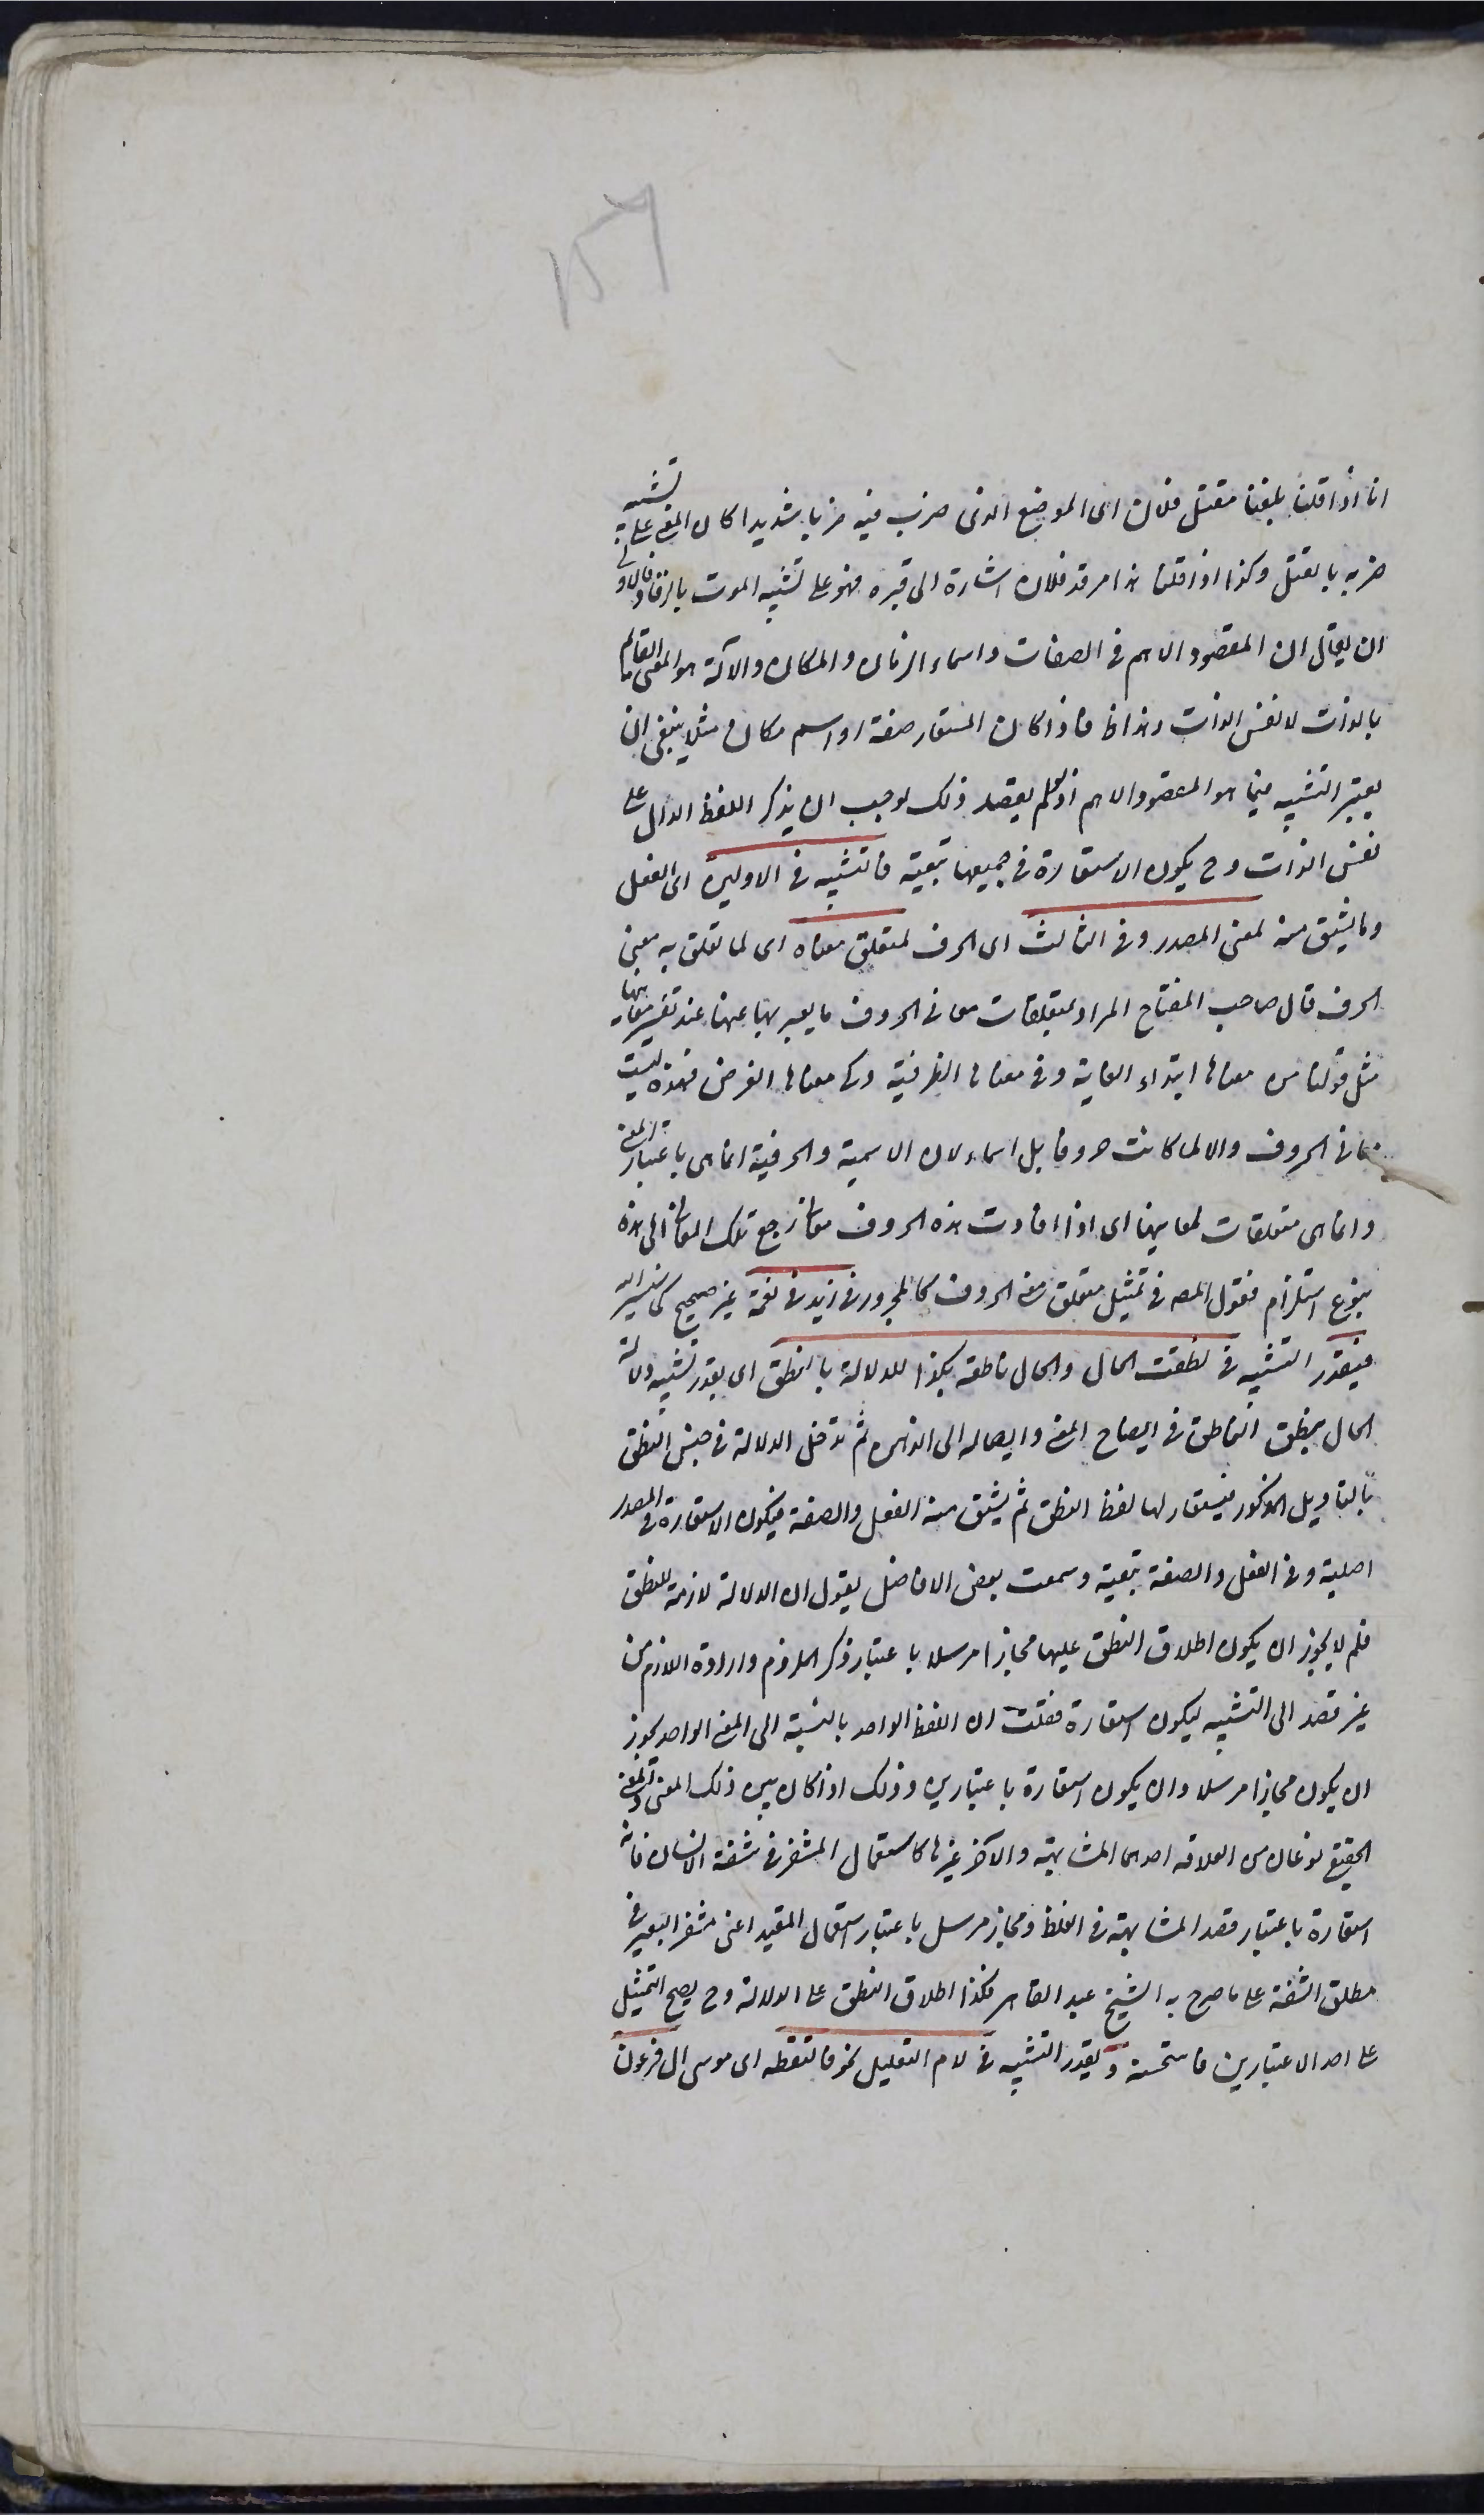 ١٥٦
انا اذا قلنا بلغنا مقتل فلان اى الموضع الذى ضرب فيه ضربا شديدا كان المعنى على تشبيه
ضربه بالقتل وكذا اذا قلنا هذا مرقد فلان اشارة الى قبره فهو على تشبيه الموت بالرقاد فالاولى
ان يقال ان المقصود الاهم فى الصفات واسماء الزمان والمكان والآلة هو المعنى القائم
بالذات لا نفس الذات وهذا ظ فاذا كان المستعار صفة او اسم مكان مثلا ينبغى ان
يعتبر التشبيه فيما هو المقصود الاهم اذ لو لم يقصد ذلك لوجب ان يذكر اللفظ الدال على
نفس الذات وح يكون الاستعارة فى جميعها تبعية فالتشبيه فى الاولين اى الفعل
وما يشتق منه لمعنى المصدر وفى الثالث اى الحرف لمتعلق معناه اى لما تعلق به معنى
الحرف قال صاحب المفتاح المراد بمتعلقات معانى الحروف ما يعبر بها عنها عند تفسير معانيها
مثل قولنا من معناها ابتداء الغاية وفى معناها الظرفية وكى معناها الغرض فهذه ليست
معانى الحروف والا لما كانت حروفا بل اسماء لان الاسمية والحرفية انما هى باعتبار المعنى
وانما هى متعلقات لمعانيها اى اذا افادت هذه الحروف معانى رجع تلك المعانى الى هذه
بنوع استلزام فقول المصه فى تمثيل متعلق معنى الحروف كالمجرور فى زيد فى نعمة غير صحيح كما سنشير اليه
فيقدر التشبيه فى نطقت الحال والحال ناطقة بكذا للدلالة بالنطق اى يقدر تشبيه دلالة
الحال بنطق الناطق فى ايضاح المعنى وايصاله الى الذهن ثم تدخل الدلالة فى جنس النطق
بالتأويل المذكور فيستعار لها لفظ النطق ثم يشتق منه الفعل والصفة فيكون الاستعارة فى المصدر
اصلية وفى الفعل والصفة تبعية وسمعت بعض الافاضل يقول ان الدلالة لازمة للنطق
فلم لا يجوز ان يكون اطلاق النطق عليها مجازا مرسلا باعتبار ذكر الملزوم وارادة اللازم من
غير قصد الى التشبيه ليكون استعارة فقلت ان اللفظ الواحد بالنسبة الى المعنى الواحد يجوز
ان يكون مجازا مرسلا وان يكون استعارة باعتبارين وذلك اذا كان بين ذلك المعنى والمعنى
الحقيقى نوعان من العلاقة احدهما المشابهة والآخر غيرها كاستعمال المشفر فى شفة الانسان فانه
استعارة باعتبار قصد المشابهة فى الغلظ ومجاز مرسل باعتبار استعمال المقيد اعنى مشفر البعير فى
مطلق الشفة على ما صرح به الشيخ عبد القاهر فكذا اطلاق النطق على الدلالة وح يصح التمثيل
على احد الاعتبارين فاستحسنه ويقدر التشبيه فى لام التعليل نحو فالتقطه اى موسى ال فرعون